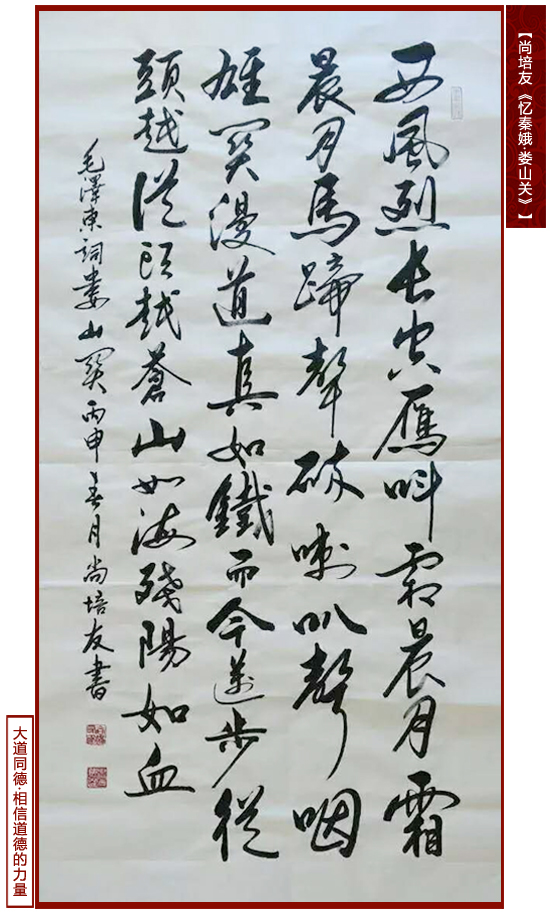 【尚培友《忆秦娥·娄山关》】
西風烈長空鴈叫霜晨月霜
晨月馬蹄聲碎喇叭聲咽
雄關漫道真如鐵而今邁步從
頭越從頭越蒼山如海殘陽如血
毛澤東詞婁山關丙申春月尚培友書
大道同德·相信道德的力量